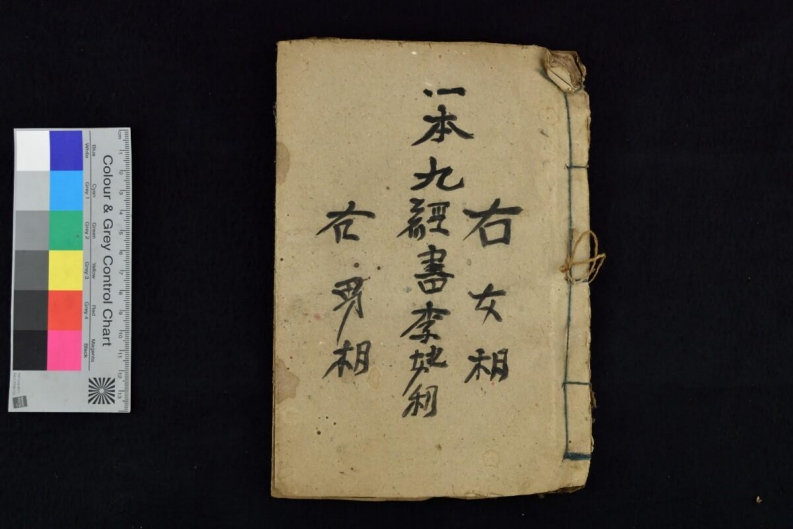 右女相
一本九經書李她利
右男相
Colour & Grey Control Chart
Blue Cyan Green Yellow Red Magenta
White Grey 1 Grey 2 Grey 3 Grey 4 Black